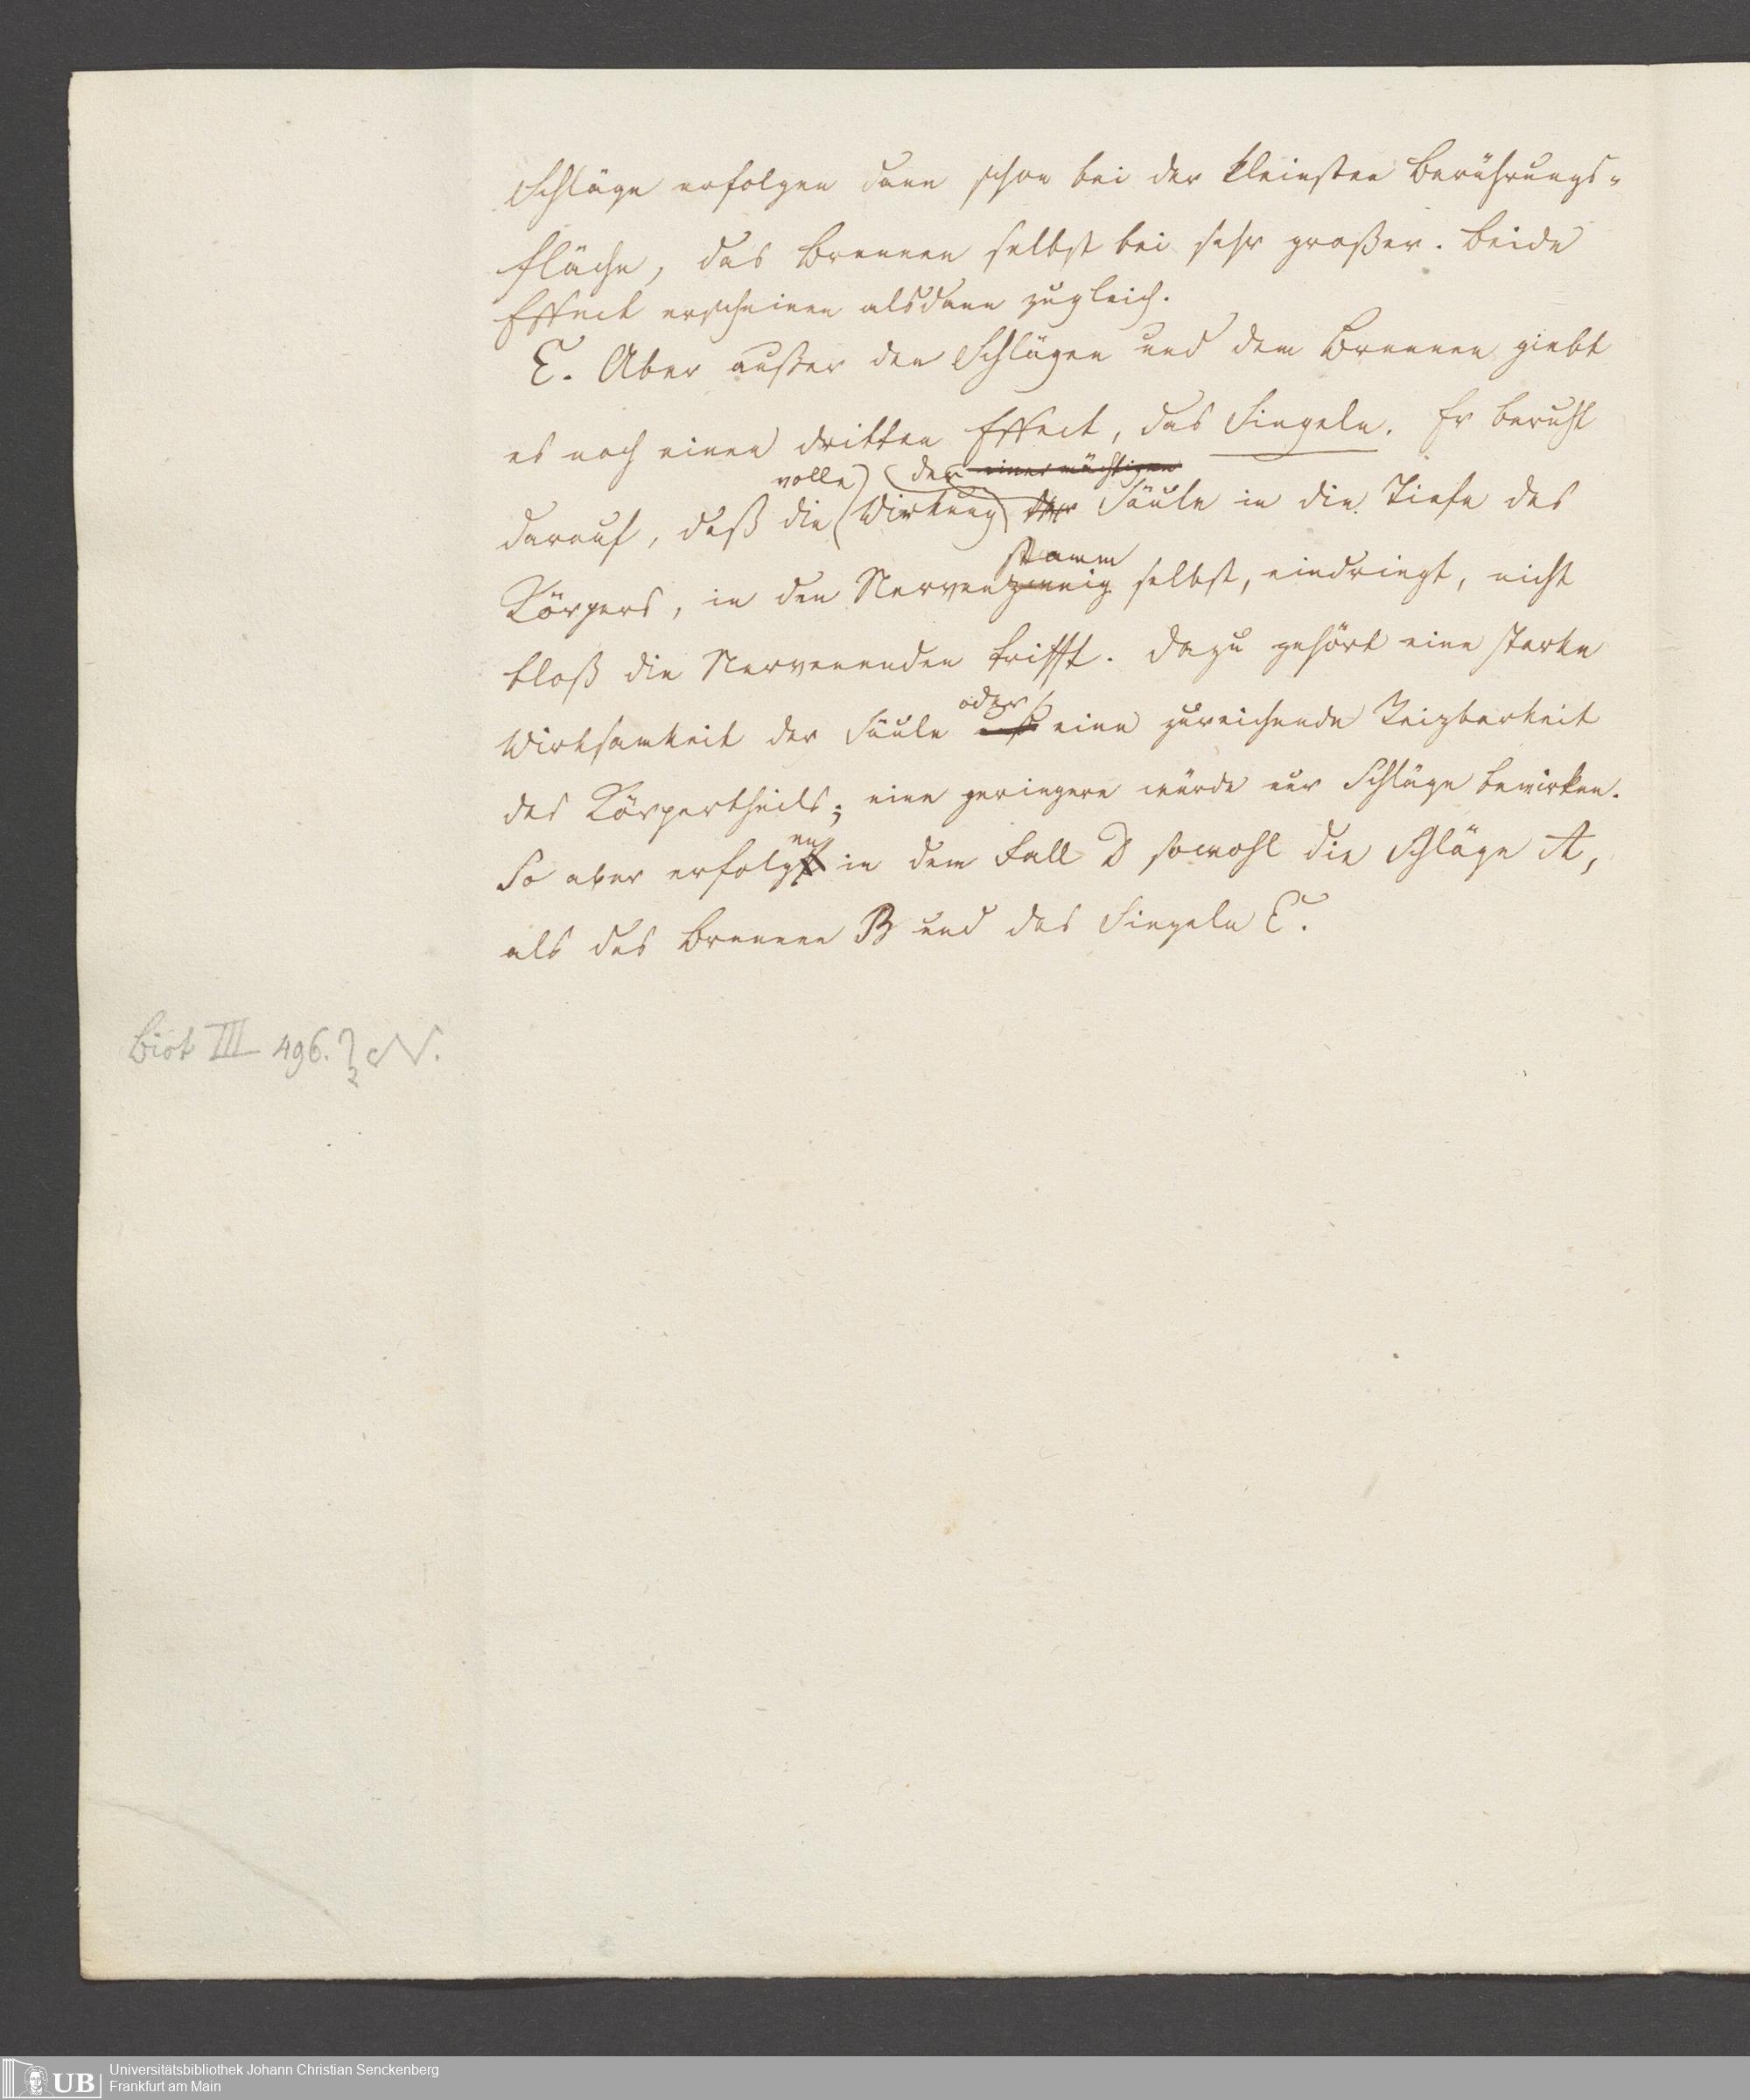 Schläge erfolgen dann schon bei der kleinsten Berührungs-
fläche, das Brennen selbst bei sehr großer. Beide
Effect erscheinen alsdann zugleich.
E. Aber außer den Schlägen und dem Brennen giebt
es noch einen dritten Effect, das Singeln. Er beruht
volle der einer mächtigen
darauf, daß die Wirkung der Säule in die Tiefe des
stamm
Körpers, in den Nervenzweig selbst, eindringt, nicht
bloß die Nervenenden trifft. Dazu gehört eine starke
oder
Wirksamkeit der Säule eine zureichende Reizbarkeit
des Körpertheils; eine geringere würde nur Schläge bewirken.
en
So aber erfolgt in dem Fall D sowohl die Schläge A,
als das Brennen B und das Singeln E.
Biot III 496. N.
UB Universitätsbibliothek Johann Christian Senckenberg
Frankfurt am Main